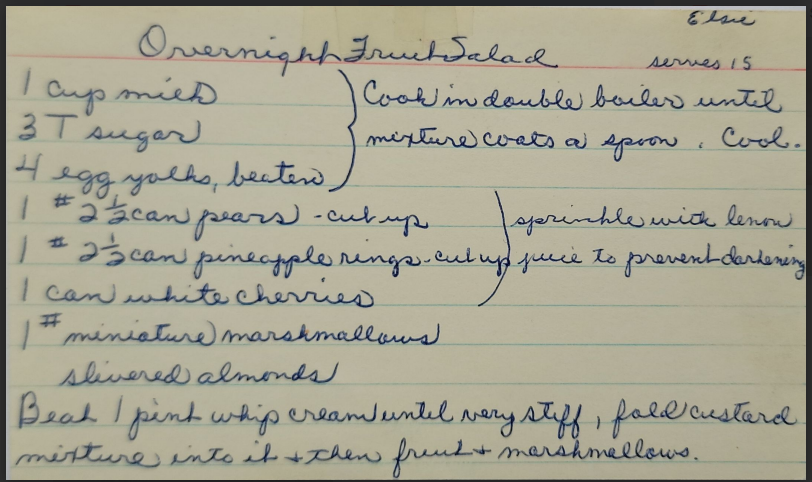 Elsie
Overnight Fruit Salad serves 15
1 cup milk Cook in double boiler until
3 T sugar mixture coats a spoon. Cool.
4 egg yolks, beaten
1 #2 1/2 can pears - cut up sprinkle with lemon
1 #2 1/2 can pineapple rings - cut up juice to prevent darkening
1 can white cherries
1 # miniature marshmallows
slivered almonds
Beat 1 pint whip cream until very stiff, fold custard
mixture into it + then fruit + marshmallows.